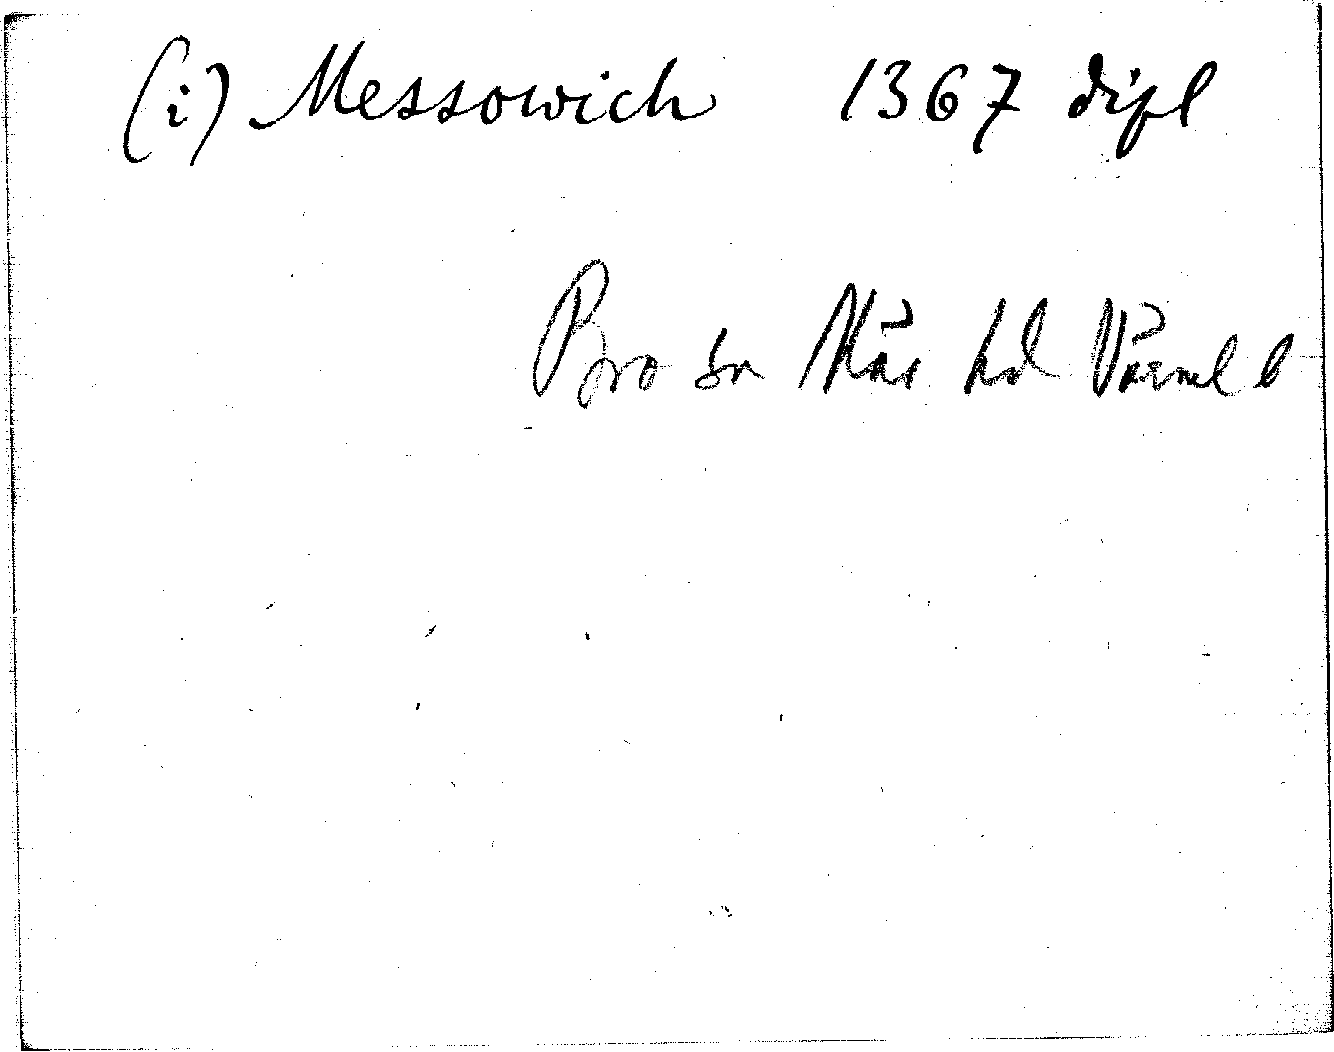 (i) Messowich 1367 dipl
Bro sn Näs hd Värml l